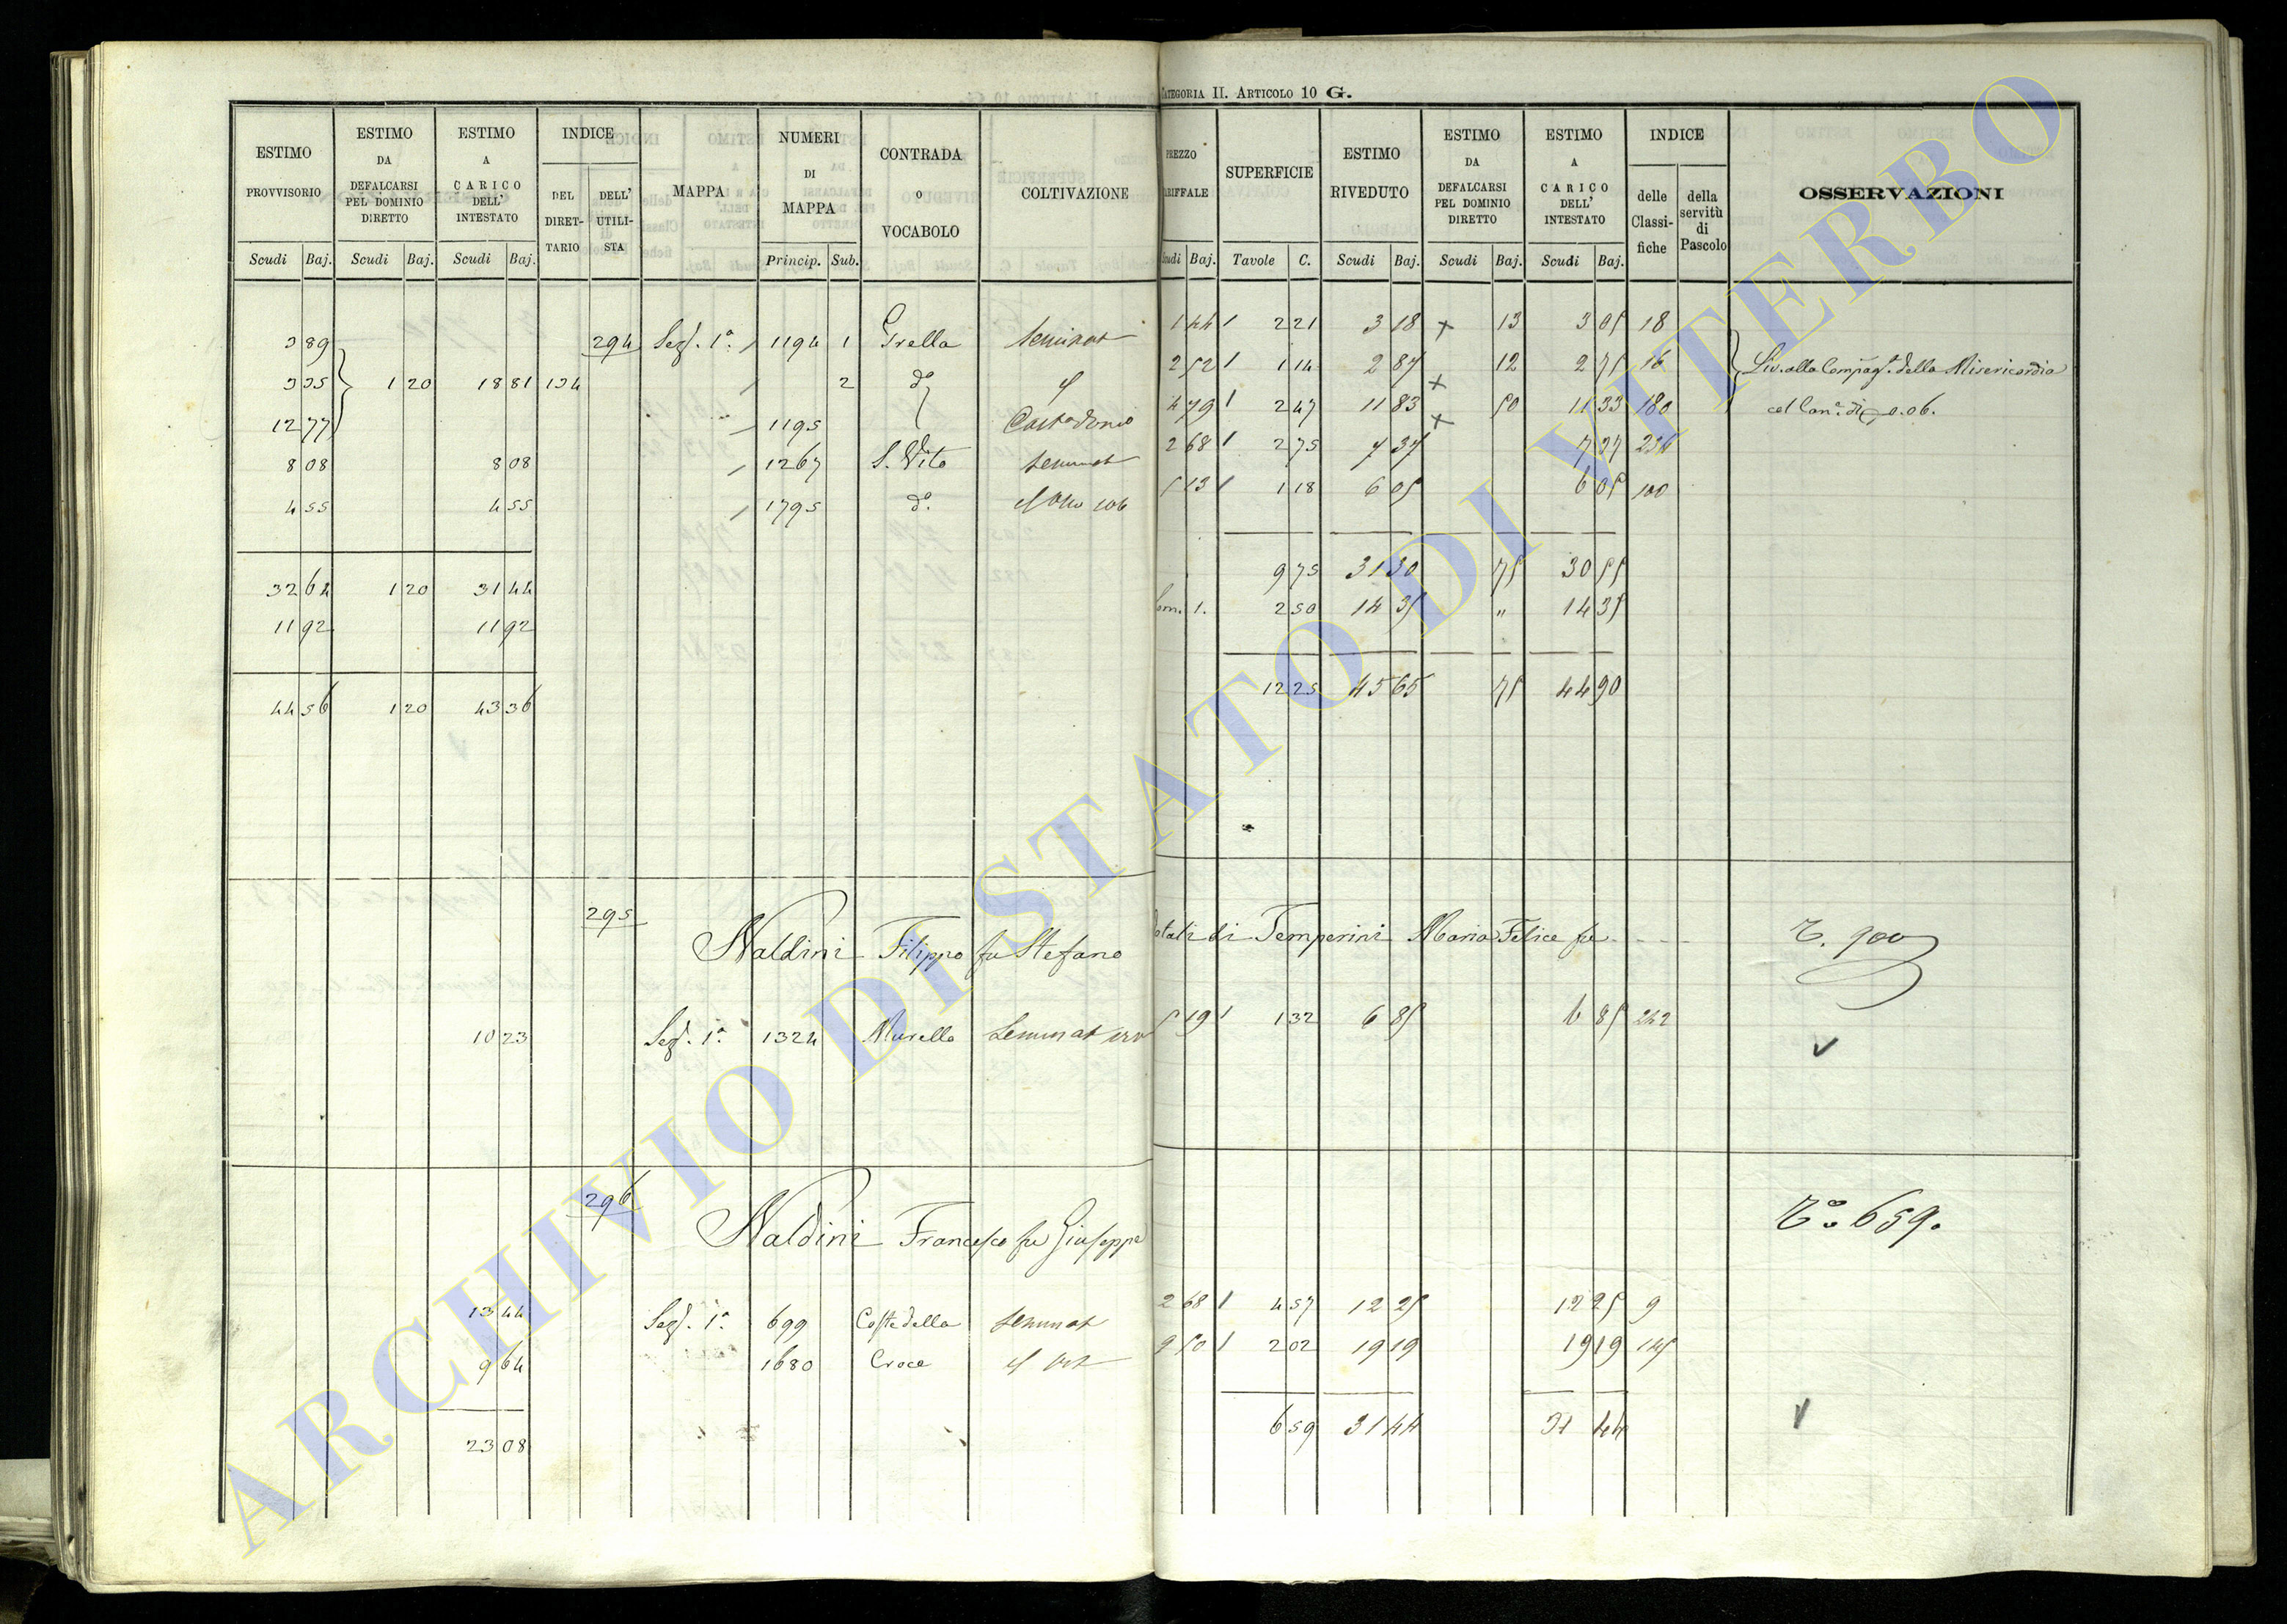 CATEGORIA II. ARTICOLO 10 G.
ESTIMO PROVVISORIO Scudi Baj.
ESTIMO DA DEFALCARSI PEL DOMINIO DIRETTO Scudi Baj.
ESTIMO A CARICO DELL' INTESTATO Scudi Baj.
INDICE DEL DIRET-TARIO DELL' UTILI-STA
MAPPA
NUMERI DI MAPPA Princip. Sub.
CONTRADA o VOCABOLO
COLTIVAZIONE
PREZZO TARIFFALE Scudi Baj.
SUPERFICIE Tavole C.
ESTIMO RIVEDUTO Scudi Baj.
ESTIMO DA DEFALCARSI PEL DOMINIO DIRETTO Scudi Baj.
ESTIMO A CARICO DELL' INTESTATO Scudi Baj.
INDICE delle Classi-fiche della servitù di Pascolo
OSSERVAZIONI
3 89 294 Sez. 1a 1194 1 Grella Seminat 1 44 1 2 21 3 18 x 13 3 05 18
3 35 1 20 18 81 134 2 do 2 52 1 1 14 2 87 x 12 2 75 16 Liv. alla Compag. della Misericordia
12 77 1195 4 79 1 2 47 11 83 x 50 11 33 180 0.06.
8 08 8 08 1267 S. Vito Seminat 2 68 1 2 75 7 37 7 37
4 55 4 55 1795 do 5 13 1 1 18 6 05 6 05 100
9 75 31 30 75 30 55
32 64 1 20 31 44
1. 2 50 14 35 " 14 35
11 92 11 92
12 25 45 65 75 44 90
44 56 1 20 43 36
295
Naldini Filippo fu Stefano dotali di Temperini Maria Felice fu ---- 900
10 23 Sez. 1a 1324 Murello Seminat 5 19 1 1 32 6 85 6 85 242
296
Naldini Francesco fu Giuseppe 659.
13 44 Sez. 1a 699 Coste della Seminat 2 68 1 4 57 12 25 12 25 9
9 64 1680 Croce 9 50 1 2 02 19 19 19 19 145
23 08 6 59 31 44 31 44
ARCHIVIO DI STATO DI VITERBO